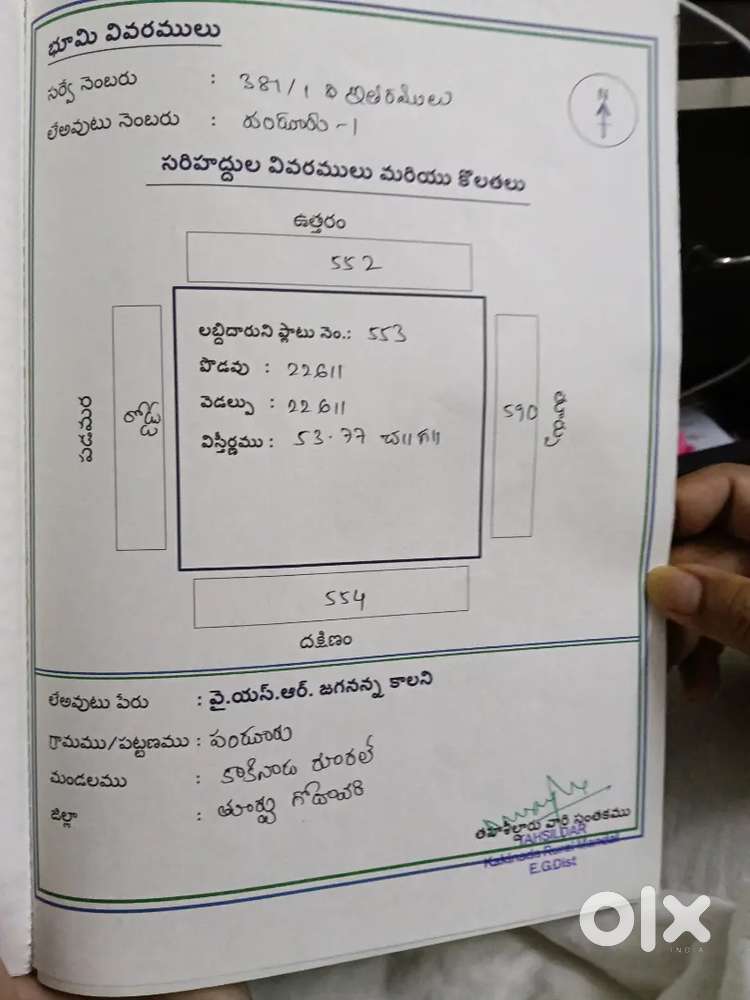 భూమి వివరములు
సర్వే నెంబరు : 381/1 & ఇతరములు
లేఅవుటు నెంబరు : పండూరు-1
N
సరిహద్దుల వివరములు మరియు కొలతలు
ఉత్తరం
552
లబ్దిదారుని ప్లాటు నెం.: 553
పొడవు : 22611
వెడల్పు : 22611
విస్తీర్ణము : 53.77 చ॥గ॥
పడమర
రోడ్డు
590
తూర్పు
554
దక్షిణం
లేఅవుటు పేరు : వై.యస్.ఆర్. జగనన్న కాలని
గ్రామము/పట్టణము : పండూరు
మండలము : కాకినాడ రూరల్
జిల్లా : తూర్పు గోదావరి
తహశీల్దారు వారి సంతకము
TAHSILDAR
Kakinada Rural Mandal
E.G.Dist
olx
INDIA